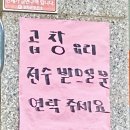 곱창 요리
전수 받으실분
연락 주세요